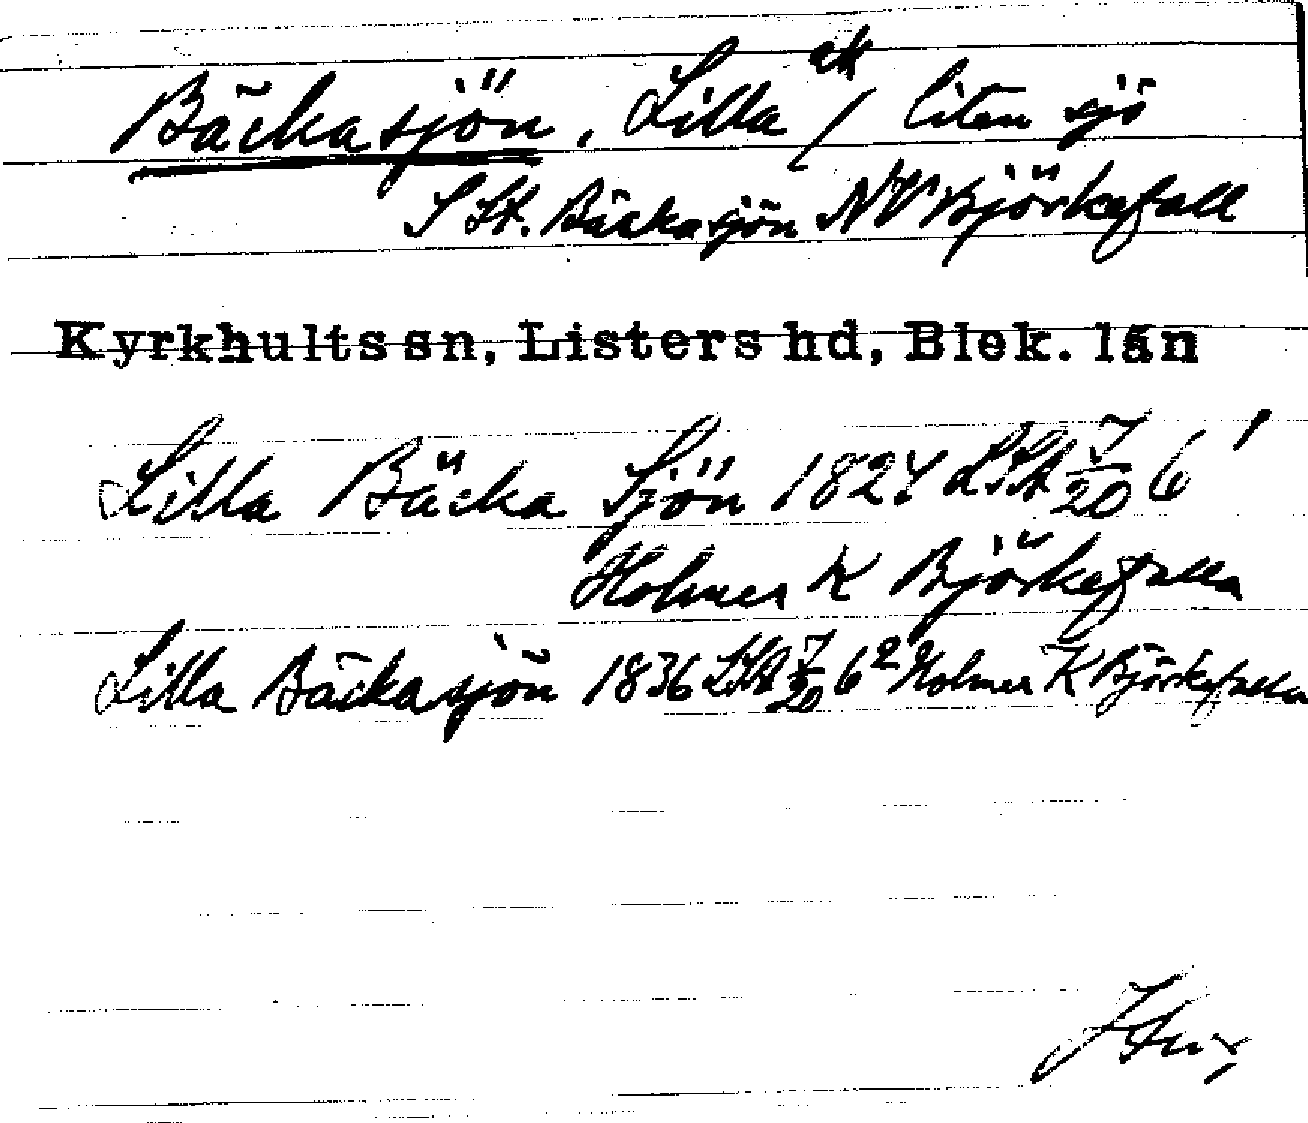 Bäckasjön, Lilla ek / liten sjö
S St. Bäckasjön NV Björkefall
Kyrkhults sn, Listers hd, Blek. län
Lilla Bäcka Sjön 1824 LSA 7/20 6¹
Holmen K Björkefalla
Lilla Bäckasjön 1836 LSA 7/20 6² Holmen K Björkefalla